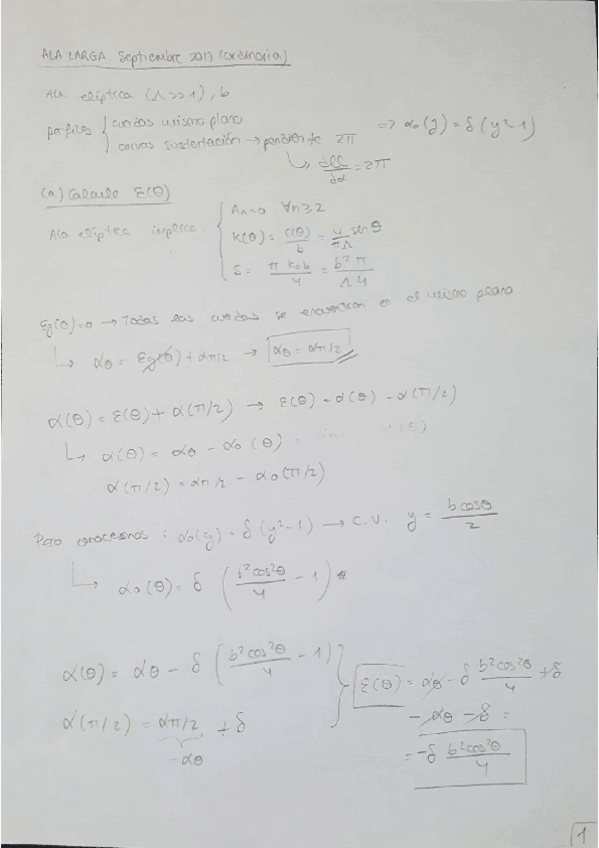 ALA LARGA Septiembre 2013 (ordinaria)
Ala elíptica (Λ>>1), b
perfiles { cuerdas mismo plano
curvas sustentación → pendiente 2π => α₀(y) = δ(y²-1)
↳ dCl/dα = 2π
(a) Calcule ε(θ)
Ala elíptica implica { An=0 ∀n≥2
K(θ) = C(θ)/b = 4/πΛ sen θ
S = π K₀b/4 = b²π/Λ4
εg(θ)=0 → Todas las cuerdas se encuentran en el mismo plano
↳ αθ = εg(θ) + απ/2 → αθ = απ/2
α(θ) = ε(θ) + α(π/2) → ε(θ) = α(θ) - α(π/2)
↳ α(θ) = αθ - α₀(θ)
α(π/2) = απ/2 - α₀(π/2)
Pero conocemos: α₀(y) = δ(y²-1) → C.V. y = b cosθ / 2
↳ α₀(θ) = δ (b²cos²θ/4 - 1)
α(θ) = αθ - δ (b²cos²θ/4 - 1) } ε(θ) = αθ - δ b²cos²θ/4 + δ
α(π/2) = απ/2 + δ - αθ - δ =
= αθ = -δ b²cos²θ/4
1